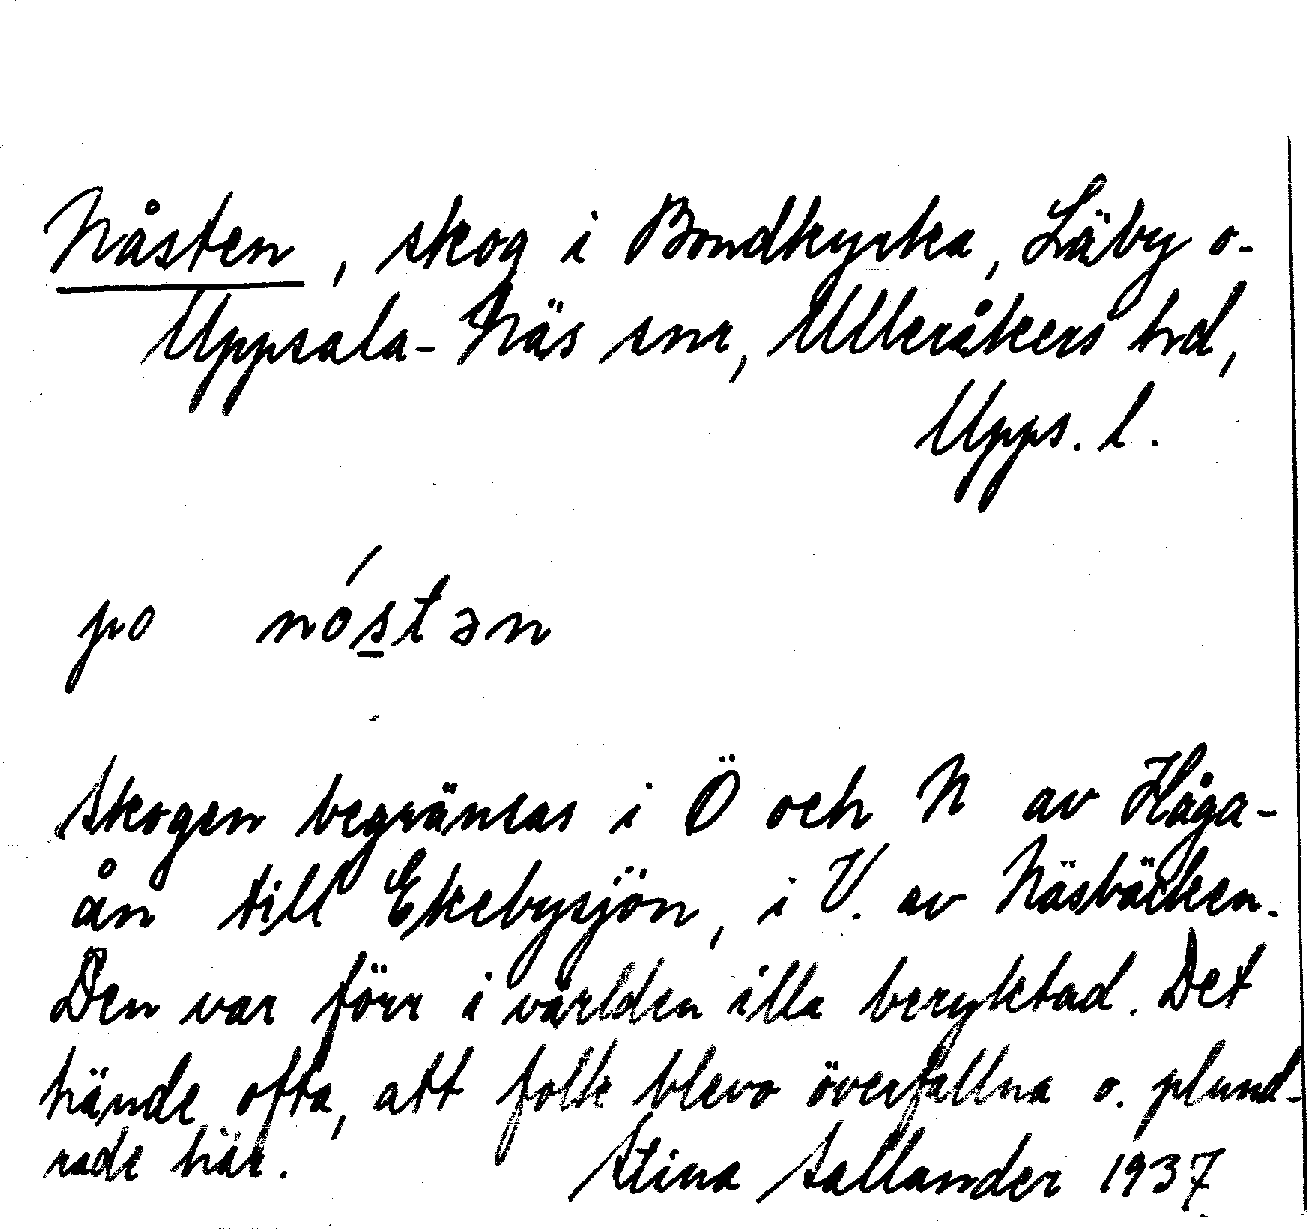 Nåsten, skog i Bondkyrka, Läby o.
Uppsala-Näs snr, Ulleråkers hd,
Upps. l.
po nóstən
Skogen begränsas i Ö och N av Håga-
ån till Ekebysjön, i V. av Näsbäcken.
Den var förr i världen illa beryktad. Det
hände ofta, att folk blevo överfallna o. plund-
rade här. Stina Sallander 1937